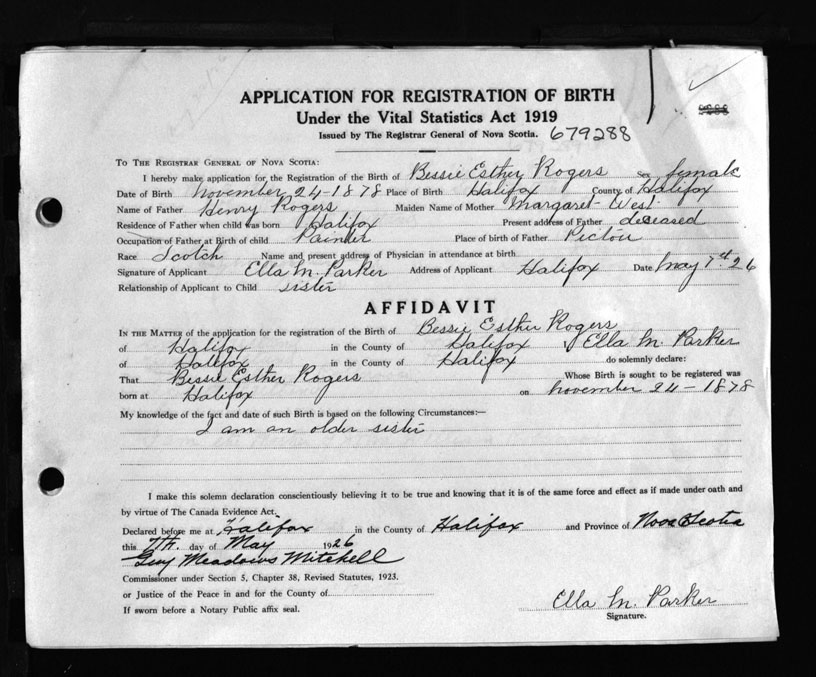 APPLICATION FOR REGISTRATION OF BIRTH
Under the Vital Statistics Act 1919
Issued by The Registrar General of Nova Scotia. 679288
TO THE REGISTRAR GENERAL OF NOVA SCOTIA:
I hereby make application for the Registration of the Birth of Bessie Esther Rogers Sex female
Date of Birth November 24-1878 Place of Birth Halifax County of Halifax
Name of Father Henry Rogers Maiden Name of Mother Margaret West
Residence of Father when child was born Halifax Present address of Father deceased
Occupation of Father at Birth of child Painter Place of birth of Father Pictou
Race Scotch Name and present address of Physician in attendance at birth
Signature of Applicant Ella M. Parker Address of Applicant Halifax Date May 7th 26
Relationship of Applicant to Child sister
AFFIDAVIT
IN THE MATTER of the application for the registration of the Birth of Bessie Esther Rogers
of Halifax in the County of Halifax Ella M. Parker
of Halifax in the County of Halifax do solemnly declare:
That Bessie Esther Rogers Whose Birth is sought to be registered was
born at Halifax on November 24-1878
My knowledge of the fact and date of such Birth is based on the following Circumstances:—
I am an older sister
I make this solemn declaration conscientiously believing it to be true and knowing that it is of the same force and effect as if made under oath and
by virtue of The Canada Evidence Act.
Declared before me at Halifax in the County of Halifax and Province of Nova Scotia
this 7th. day of May 1926
Guy Meadows Mitchell
Commissioner under Section 5, Chapter 38, Revised Statutes, 1923.
or Justice of the Peace in and for the County of
If sworn before a Notary Public affix seal.
Ella M. Parker
Signature.